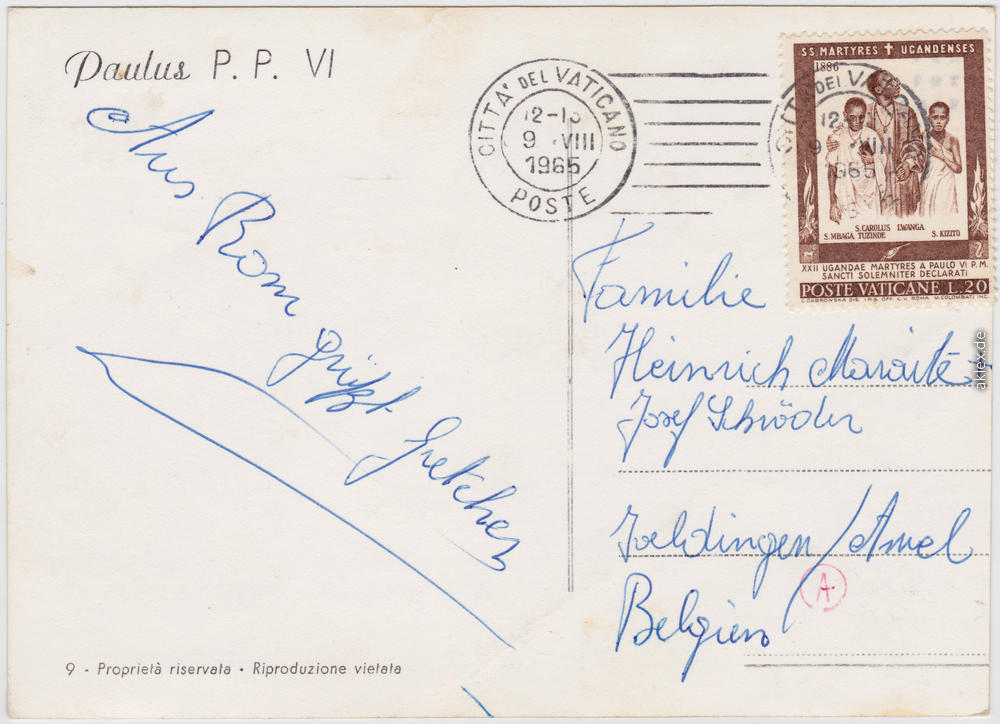 Paulus P. P. VI
Aus Rom grüßt Gretchen
CITTA' DEL VATICANO
12-13
9 VIII
1965
POSTE
SS MARTYRES UGANDENSES
1886
S. CAROLUS LWANGA
S. MBAGA TUZINDE S. KIZITO
XXII UGANDAE MARTYRES A PAULO VI P.M.
SANCTI SOLEMNITER DECLARATI
POSTE VATICANE L.20
Familie
Heinrich Maraite
Josef Schröder
/Amel
Belgien
A
9 - Proprietà riservata - Riproduzione vietata
akpool.de